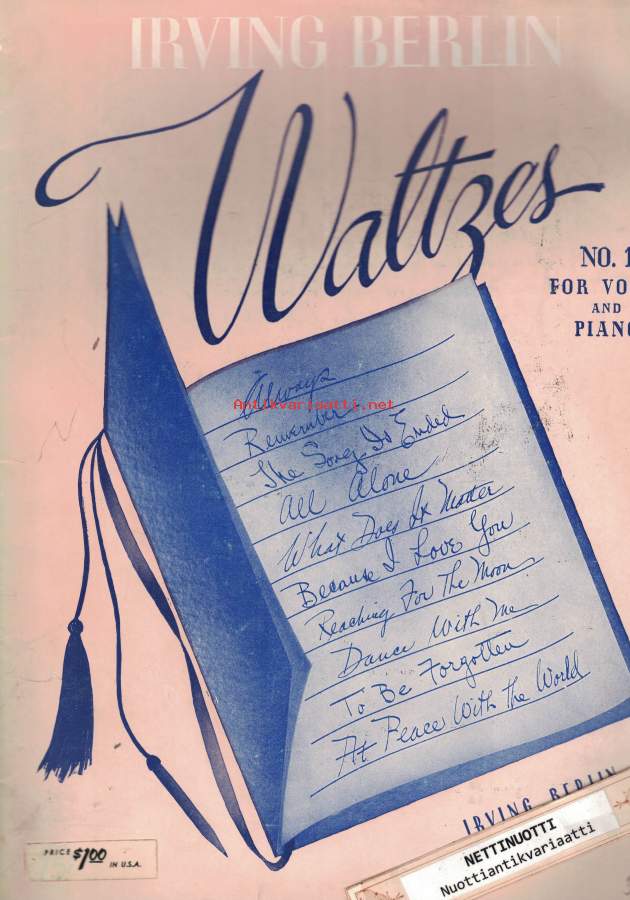 IRVING BERLIN
Waltzes
NO. 1
FOR VO
AND
PIANO
Always
Antikvariaatti.net
Remember
The Song Is Ended
All Alone
What Does It Matter
Because I Love You
Reaching For The Moon
Dance With Me
To Be Forgotten
At Peace With The World
IRVING BERLIN
NETTINUOTTI
Nuottiantikvariaatti
PRICE $1.00 IN U.S.A.